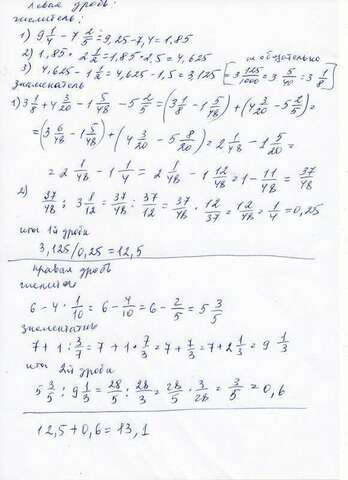 левая дробь:
числитель:
1) 9 1/4 - 7 2/5 = 9,25 - 7,4 = 1,85
2) 1,85 · 2 1/2 = 1,85 · 2,5 = 4,625
не обязательно
3) 4,625 - 1 1/2 = 4,625 - 1,5 = 3,125 [= 3 125/1000 = 3 5/40 = 3 1/8]
знаменатель
1) 3 1/8 + 4 3/20 - 1 5/48 - 5 2/5 = (3 1/8 - 1 5/48) + (4 3/20 - 5 2/5) =
= (3 6/48 - 1 5/48) + (4 3/20 - 5 8/20) = 2 1/48 - 1 5/20 =
= 2 1/48 - 1 1/4 = 2 1/48 - 1 12/48 = 1 - 11/48 = 37/48
2) 37/48 : 3 1/12 = 37/48 : 37/12 = 37/48 · 12/37 = 12/48 = 1/4 = 0,25
итог 1й дроби
3,125/0,25 = 12,5
правая дробь
числитель
6 - 4 · 1/10 = 6 - 4/10 = 6 - 2/5 = 5 3/5
знаменатель
7 + 1 : 3/7 = 7 + 1 · 7/3 = 7 + 7/3 = 7 + 2 1/3 = 9 1/3
итог 2й дроби
5 3/5 : 9 1/3 = 28/5 : 28/3 = 28/5 · 3/28 = 3/5 = 0,6
12,5 + 0,6 = 13,1